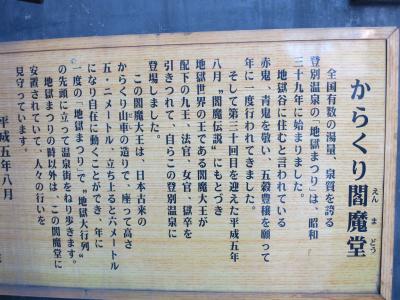 からくり閻魔堂
えんまどう
全国有数の湯量、泉質を誇る
登別温泉の「地獄まつり」は、昭和
三十九年に始まりました。
地獄谷に住むと言われている
赤鬼、青鬼を敬い、五穀豊穣を願って
年に一度行われてきました。
そして第三十回目を迎えた平成五年
八月〝閻魔伝説〟にもとづき
地獄世界の王である閻魔大王が
配下の九王、法官、女官、獄卒を
引きつれて、自らこの登別温泉に
登場しました。
この閻魔大王は、日本古来の
からくり山車の造りで、座って高さ
五・二メートル、立ち上ると六メートル
になり自在に動くことができ、年に
一度の「地獄まつり」で〝地獄大行列〟
の先頭に立って温泉街をねり歩きます。
地獄まつりの時以外は、この閻魔堂に
安置されていて、人々の行いを
見守っています。
平成五年八月